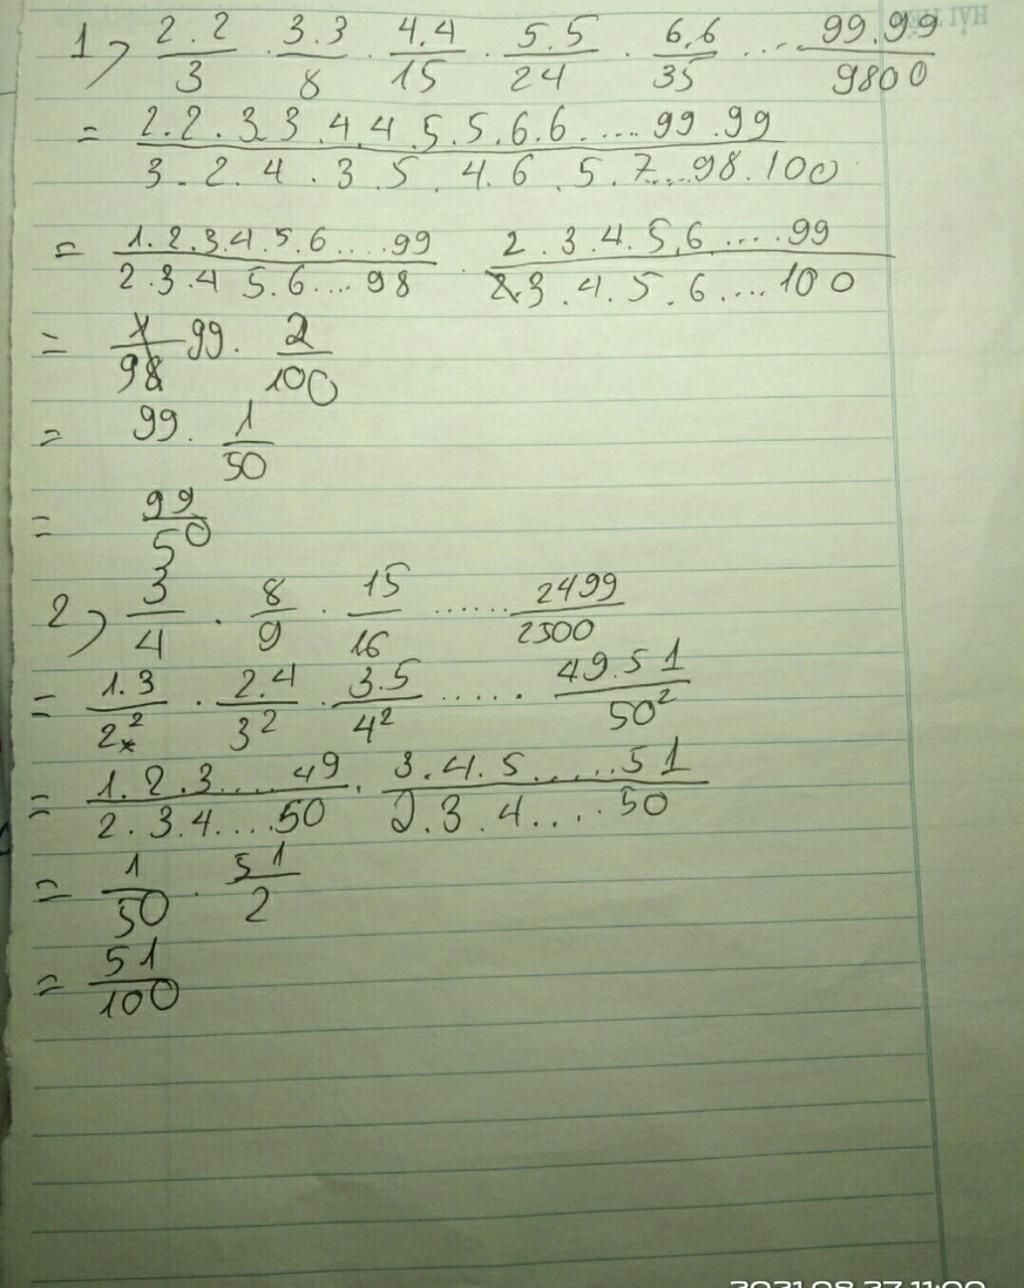 HẢI TIẾN
1) 2.2/3 . 3.3/8 . 4.4/15 . 5.5/24 . 6.6/35 .... 99.99/9800
= 2.2.3.3.4.4.5.5.6.6.....99.99/3.2.4.3.5.4.6.5.7....98.100
= 1.2.3.4.5.6....99/2.3.4.5.6....98 . 2.3.4.5.6.....99/2.3.4.5.6....100
= 1/98 99. 2/100
= 99. 1/50
= 99/50
2) 3/4 . 8/9 . 15/16 ...... 2499/2500
= 1.3/2² . 2.4/3² . 3.5/4² ...... 49.51/50²
= 1.2.3....49/2.3.4....50 . 3.4.5......51/2.3.4.....50
= 1/50 . 51/2
= 51/100